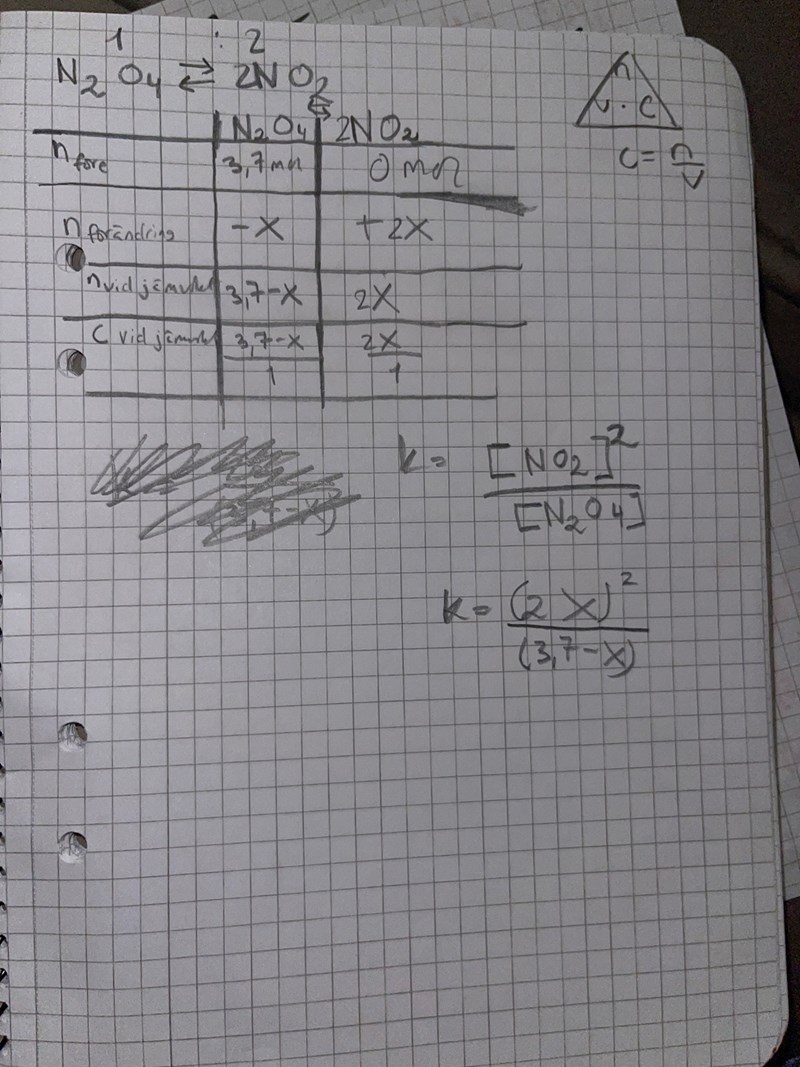 1 : 2
N₂O₄ ⇄ 2NO₂
n
v · c
c = n/v
N₂O₄ ⇄ 2NO₂
n före 3,7 mol 0 mol
n förändring -x +2x
n vid jämvikt 3,7-x 2x
c vid jämvikt 3,7-x/1 2x/1
k = [NO₂]²/[N₂O₄]
k = (2x)²/(3,7-x)